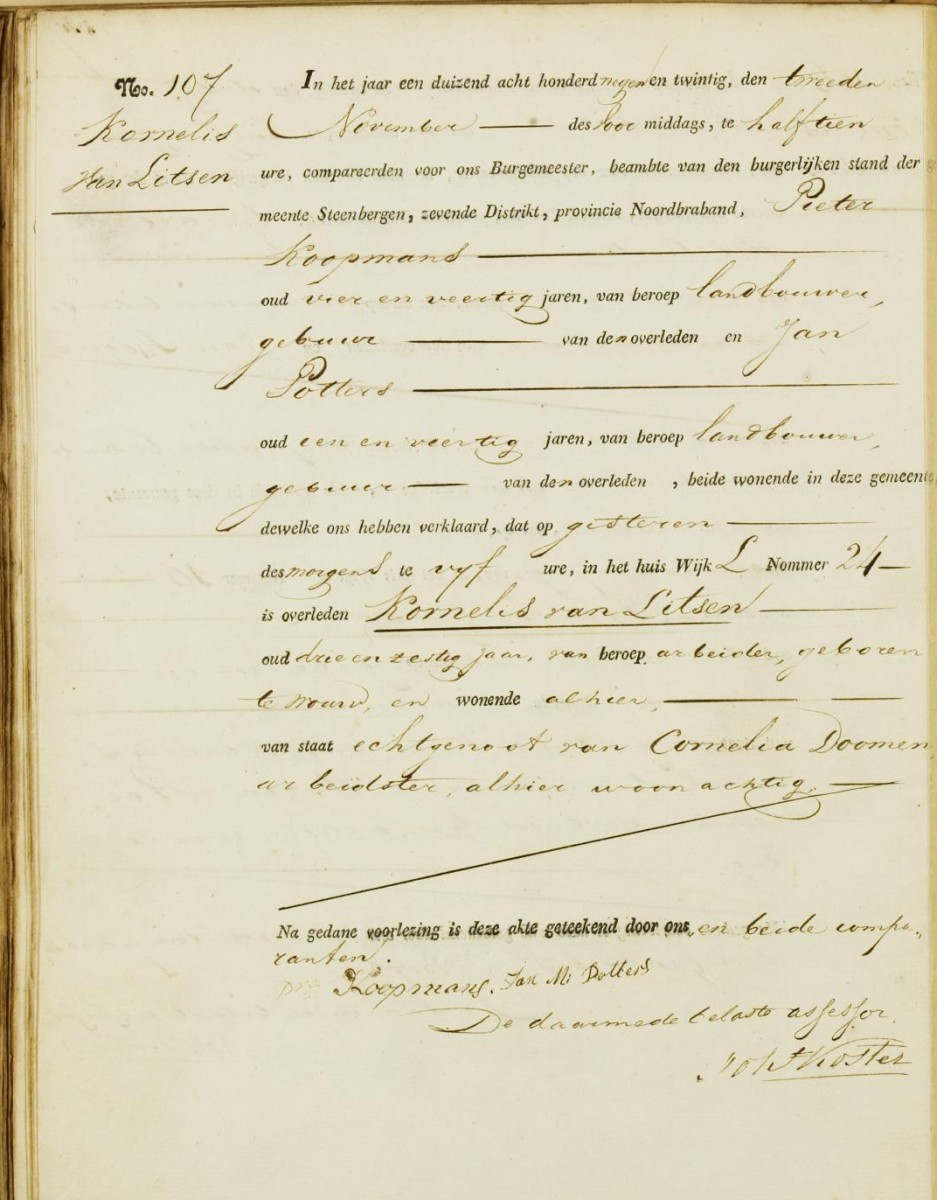 No. 107
Kornelis
Van Litsen
In het jaar een duizend acht honderd negen en twintig, den tweeden
November des voor middags, te half tien
ure, compareerden voor ons Burgemeester, beambte van den burgerlijken stand der ge
meente Steenbergen, zevende Distrikt, provincie Noordbraband, Pieter
Koopmans
oud vier en veertig jaren, van beroep landbouwer,
gebuur van den overleden en Jan
Potters
oud een en veertig jaren, van beroep landbouwer,
gebuur van den overleden , beide wonende in deze gemeente,
dewelke ons hebben verklaard, dat op gisteren
des morgens te vyf ure, in het huis Wijk L Nommer 24
is overleden Kornelis van Litsen
oud drie en zestig jaar, van beroep arbeider, geboren
te Wouw, en wonende alhier,
van staat echtgenoot van Cornelia Doomen
arbeidster, alhier woonachtig.
Na gedane voorlezing is deze akte geteekend door ons, en beide compa„
ranten.
Koopmans. Jan Potters
De daarmede belaste assessor.
Koster